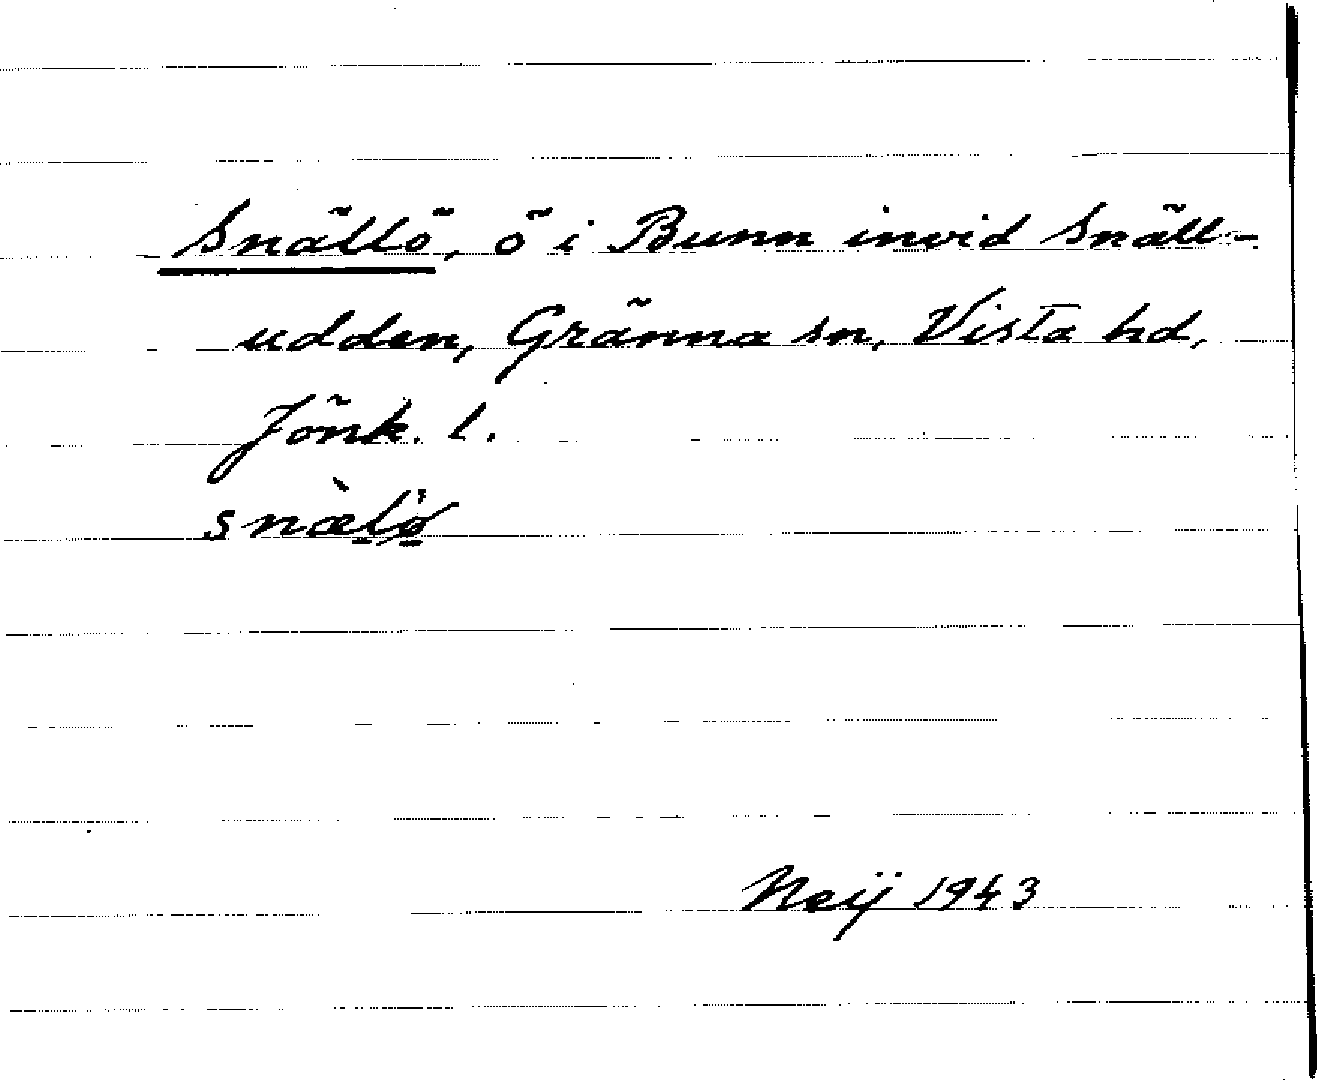 Snällö, ö i Bunn invid Snäll-
udden, Gränna sn, Vista hd,
Jönk. l.
snæ̀lø
Neij 1943